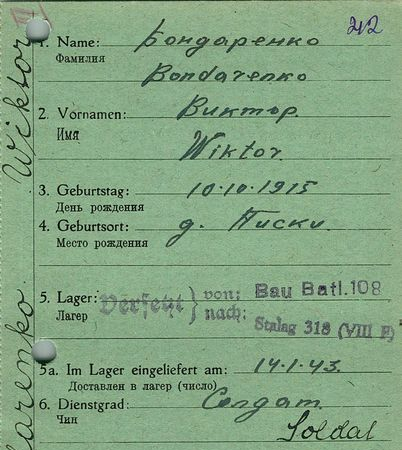 212
1. Name: Бондаренко
Фамилия
Bondarenko
2. Vornamen: Виктор.
Имя
Wiktor.
3. Geburtstag: 10.10.1915
День рождения
4. Geburtsort: д. Писки.
Место рождения
5. Lager: Versetzt von: Bau Batl.108
Лагер nach: Stalag 318 (VIII F)
5a. Im Lager eingeliefert am: 14.1.43.
Доставлен в лагер (число)
6. Dienstgrad: Солдат.
Чин
Soldat
Wiktor
arenko.